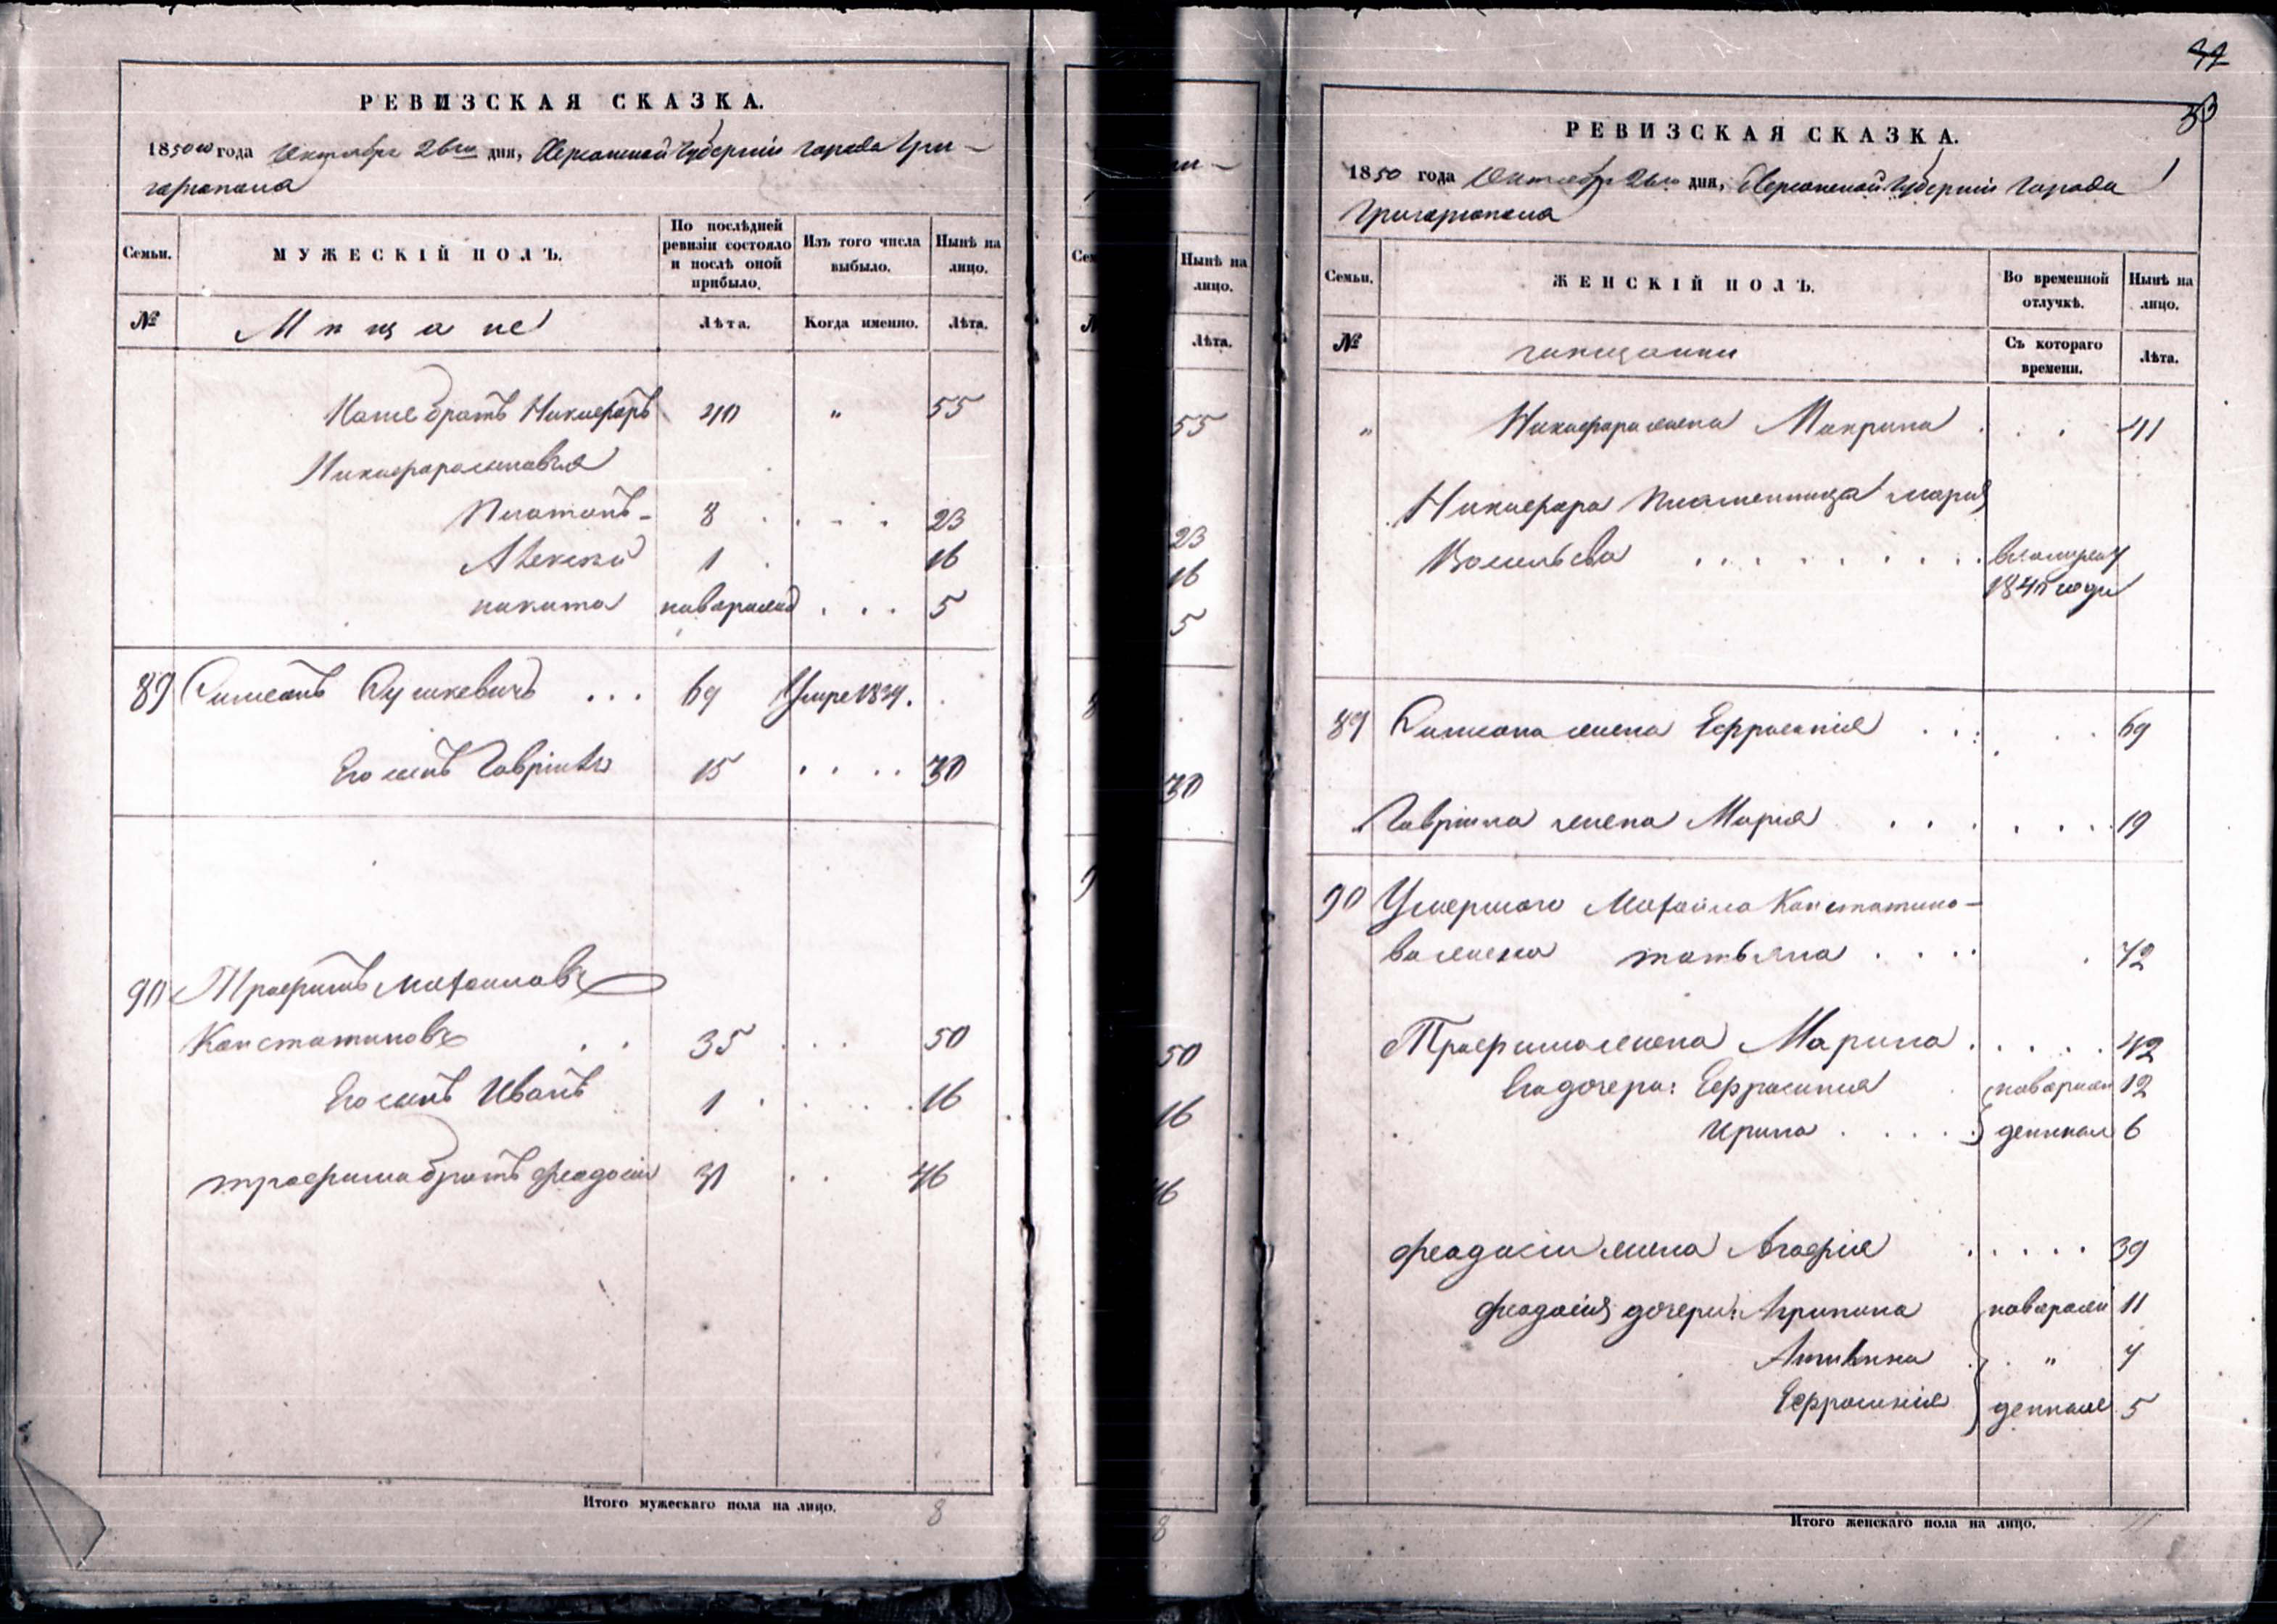 РЕВИЗСКАЯ СКАЗКА.
1850го года Октября 26го дня, Херсонской Губернiи города Гри-
горiополя
Семьи.
МУЖЕСКIЙ ПОЛЪ.
По послѣдней
ревизiи состояло
и послѣ оной
прибыло.
Изъ того числа
выбыло.
Нынѣ на
лицо.
№
Мѣщане
Лѣта.
Когда именно.
Лѣта.
братъ Никифоръ 40 " 55
Никифора сыновья
Платонъ - 8 . . . . 23
Алексѣй 1 . 16
никита новорожд . . . 5
89 Симеонъ . . . 69 Умре 1839. .
Его сынъ Гаврiилъ 15 . . . . 30
90 Трофимъ Михайловъ
Констатиновъ . . 35 . . . 50
Его сынъ Иванъ 1 . . . . 16
трофима братъ феодосiй 31 . . 46
Итого мужескаго пола на лицо. 8
ин -
Сем
Нынѣ на
лицо.
№
Лѣта.
55
23
16
5
30
50
16
46
8
33
РЕВИЗСКАЯ СКАЗКА.
1850 года Октября 26го дня, Херсонской Губернiи города
Григорiополя
Семьи.
ЖЕНСКIЙ ПОЛЪ.
Во временной
отлучкѣ.
Нынѣ на
лицо.
№
мѣщанки
Съ котораго
времени.
Лѣта.
" Никифора жена Макрина . . . 41
Никифора племенница марiя
Васильева . . . . . . . . .
1840 году
89 Симеона жена Ефросинiя . . : . . . 69
Гаврiила жена Марiя . . . . . . . 19
90 Умершаго Михайла Констатино-
ва жена татьяна . . . . . 72
Трофима жена Марина . . . . . 42
Его дочери: Ефросинiя новорож 12
Ирина . . . . . 6
феодосiя жена Агафiя . . . . . 39
феодосiя дочери: Агрипина новорож 11
" 7
Ефросинiя 5
Итого женскаго пола на лицо. 11